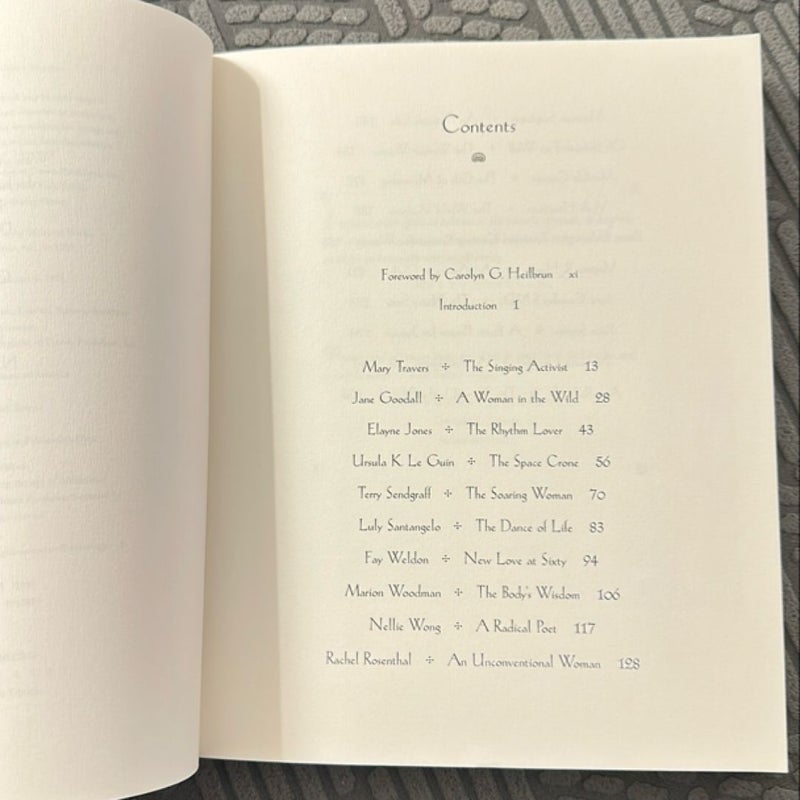 Contents
Foreword by Carolyn G. Heilbrun xi
Introduction 1
Mary Travers ✣ The Singing Activist 13
Jane Goodall ✣ A Woman in the Wild 28
Elayne Jones ✣ The Rhythm Lover 43
Ursula K. Le Guin ✣ The Space Crone 56
Terry Sendgraff ✣ The Soaring Woman 70
Luly Santangelo ✣ The Dance of Life 83
Fay Weldon ✣ New Love at Sixty 94
Marion Woodman ✣ The Body's Wisdom 106
Nellie Wong ✣ A Radical Poet 117
Rachel Rosenthal ✣ An Unconventional Woman 128